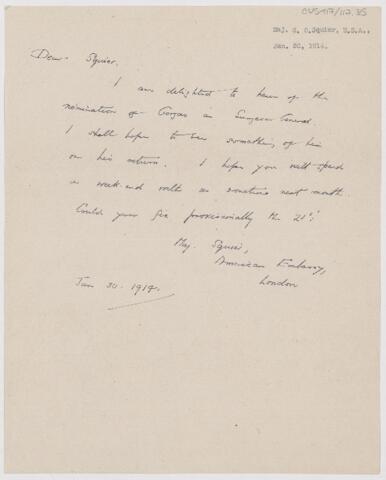 CUS417/112.35
Maj. G. O. Squier, U.S.A.,
Jan. 30, 1914.
Dear Squier,
I am delighted to hear of the
nomination of Gorgas as Surgeon General.
I shall hope to see something of him
on his return. I hope you will spend
a week-end with us sometime next month.
Could you fix provisionally the 21st?
Maj. Squier,
American Embassy,
London
Jan 30. 1914.